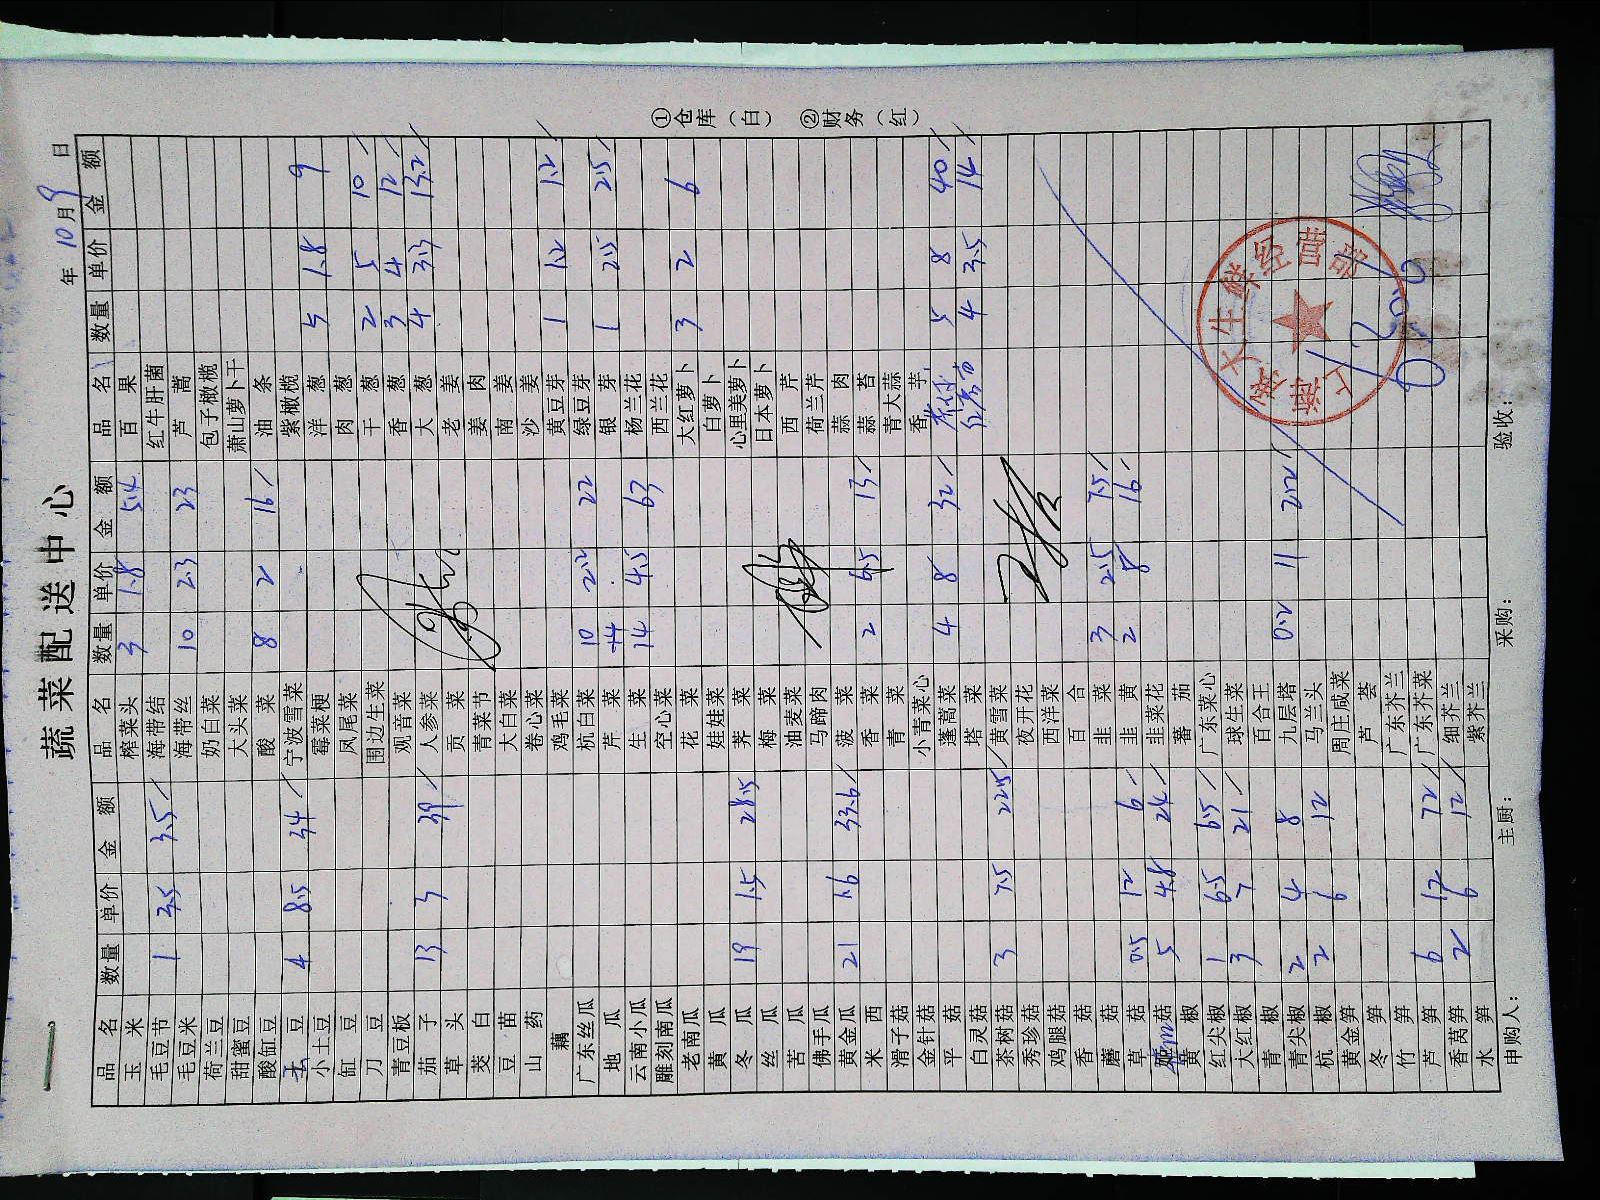 蔬菜配送中心
年 10月 9 日
品名 数量 单价 金额 品名 数量 单价 金额 品名 数量 单价 金额
玉米 榨菜头 3 1.8 5.4 百果
毛豆节 1 3.5 3.5 海带结 红牛肝菌
毛豆米 海带丝 10 2.3 23 芦蒿
荷兰豆 奶白菜 包子橄榄
甜蜜豆 大头菜 萧山萝卜干
酸缸豆 酸菜 8 2 16 油条
豆 4 8.5 34 宁波雪菜 紫橄榄
小土豆 霉菜梗 洋葱 5 1.8 9
缸豆 凤尾菜 肉葱
刀豆 围边生菜 干葱 2 5 10
青豆板 观音菜 香葱 3 4 12
茄子 13 3 39 人参菜 大葱 4 3.3 13.2
草头 贡菜 老姜
茭白 青菜节 姜肉
豆苗 大白菜 南姜
山药 卷心菜 沙姜
藕 鸡毛菜 黄豆芽 1 1.2 1.2
广东丝瓜 杭白菜 10 2.2 22 绿豆芽
地瓜 芹菜 14 银芽 1 2.5 2.5
云南小瓜 生菜 14 4.5 63 杨兰花
雕刻南瓜 空心菜 西兰花
老南瓜 花菜 大红萝卜 3 2 6
黄瓜 娃娃菜 白萝卜
冬瓜 19 1.5 28.5 荠菜 心里美萝卜
丝瓜 梅菜 日本萝卜
苦瓜 油麦菜 西芹
佛手瓜 马蹄肉 荷兰芹
黄金瓜 21 1.6 33.6 菠菜 蒜肉
米西 香菜 2 6.5 13 蒜苔
滑子菇 青菜 青大蒜
金针菇 小青菜心 香芋
平菇 蓬蒿菜 4 8 32 5 8 40
白灵菇 塔菜 4 3.5 14
茶树菇 3 7.5 22.5 黄雪菜
秀珍菇 夜开花
鸡腿菇 西洋菜
香菇 百合
蘑菇 韭菜 3 2.5 7.5
草菇 0.5 12 6 韭黄 2 8 16
菇 5 4.8 24 韭菜花
黄椒 蕃茄
红尖椒 1 6.5 6.5 广东菜心
大红椒 3 7 21 球生菜
青椒 百合王
青尖椒 2 4 8 九层塔 0.2 11 2.2
杭椒 2 6 12 马兰头
黄金笋 周庄咸菜
冬笋 芦荟
竹笋 广东芥兰
芦笋 6 12 72 广东芥菜
香莴笋 2 6 12 细芥兰
水笋 紫芥兰
申购人: 主厨: 采购: 验收:
①仓库(白) ②财务(红)